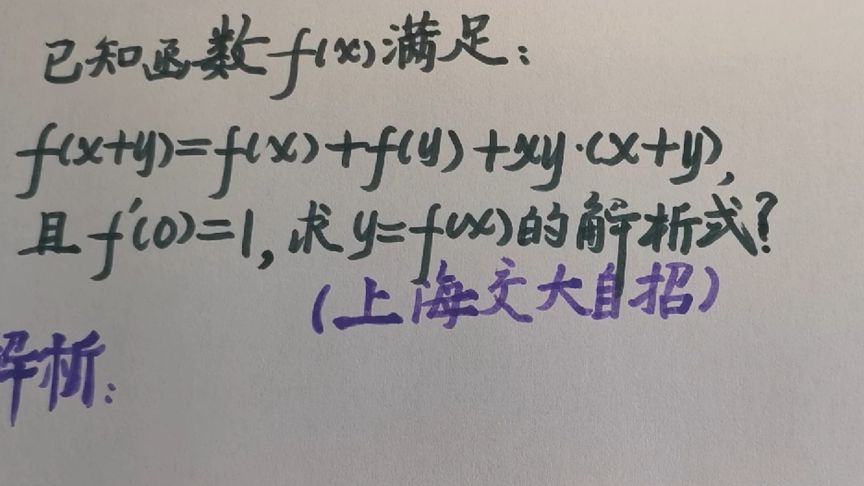 已知函数f(x)满足:
f(x+y)=f(x)+f(y)+xy·(x+y),
且f′(0)=1,求y=f(x)的解析式?
(上海交大自招)
解析: